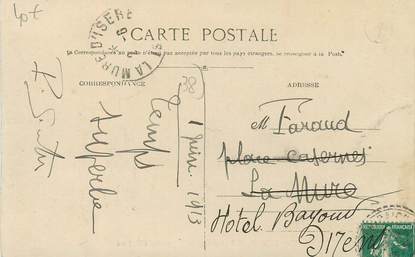 CARTE POSTALE
La Correspondance au recto n'est pas acceptée par tous les pays étrangers, se renseigner à la Poste
LA MURE D'ISÈRE
CORRESPONDANCE
38
ADRESSE
1 Juin 1913
temps
superbe
M Faraud
place Casernes
La Mure
Hotel Bayard